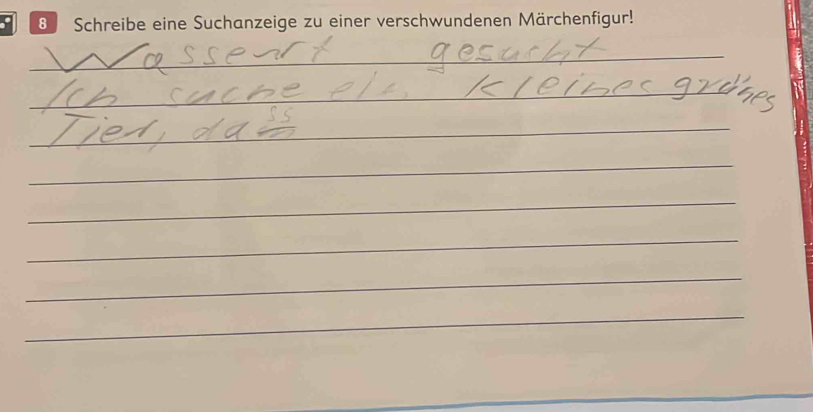 8 Schreibe eine Suchanzeige zu einer verschwundenen Märchenfigur!
gesucht
Ich suche ein kleines grünes
Tier, dass